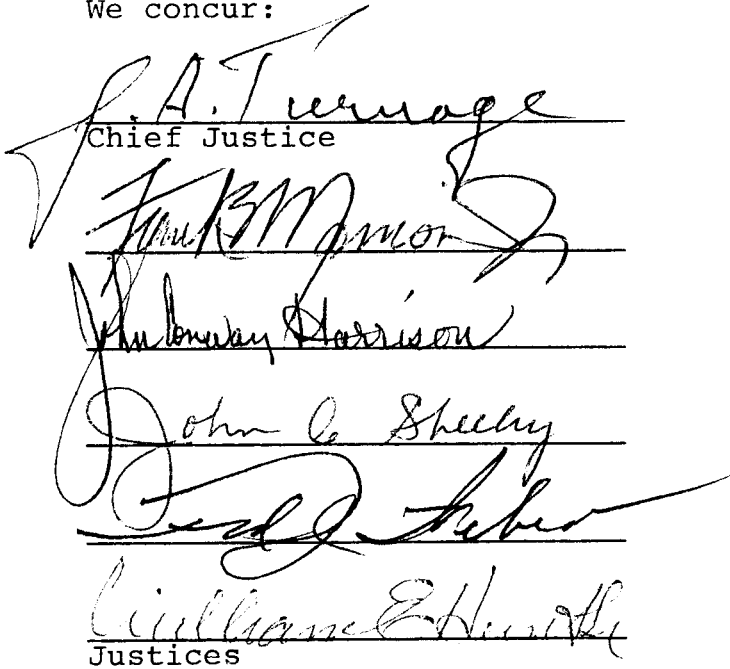 We concur:
J. A. Turnage
Chief Justice
Frank B Morrison Jr
John Conway Harrison
John C Sheehy
William E Hunt Sr
Justices